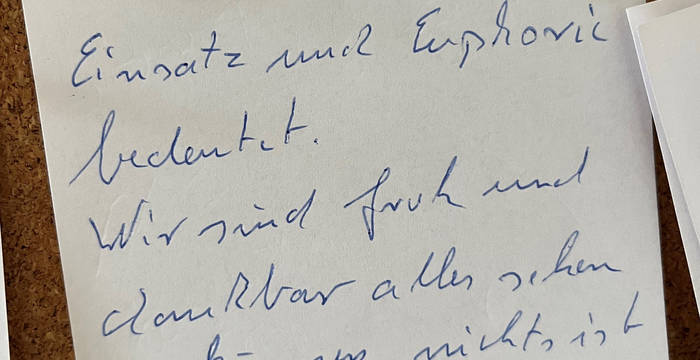 Einsatz und Euphorie
bedeutet.
Wir sind froh und
dankbar alles sehen
nichts ist